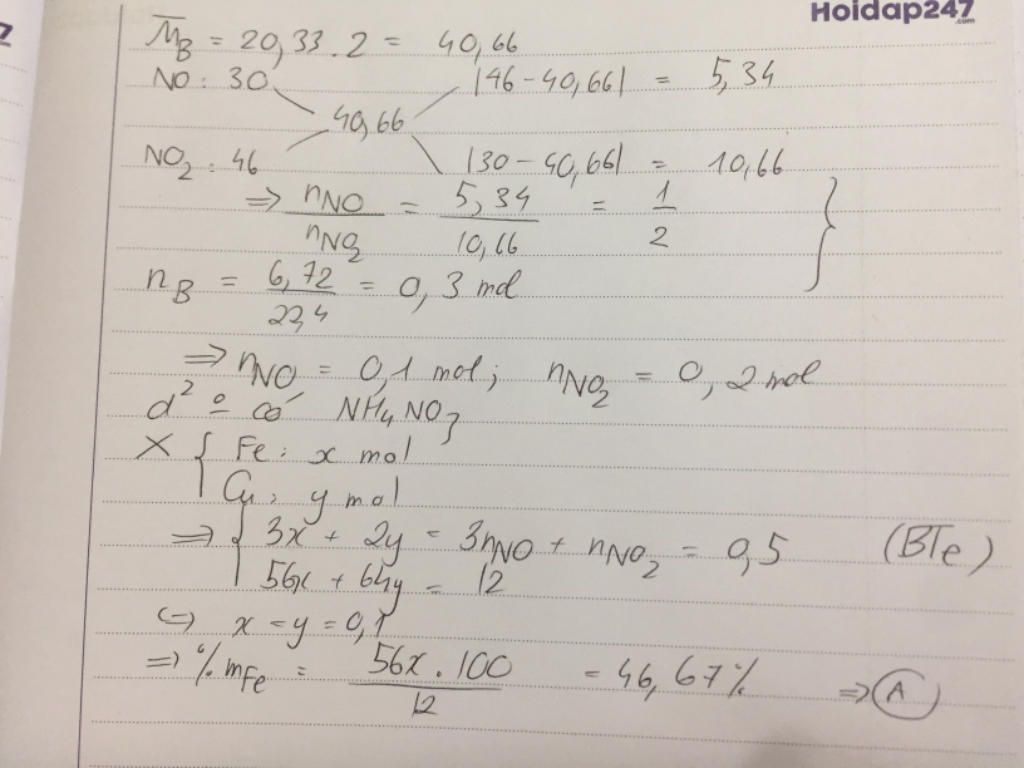 Hoidap247
.com
7
M̅_B = 20,33 . 2 = 40,66
NO : 30 |46 - 40,66| = 5,34
40,66
NO₂ : 46 |30 - 40,66| = 10,66
=> nNO / nNO₂ = 5,34 / 10,66 = 1/2 }
n_B = 6,72 / 22,4 = 0,3 mol
=> nNO = 0,1 mol ; nNO₂ = 0,2 mol
d² o có NH₄NO₃
X { Fe : x mol
Cu : y mol
=> { 3x + 2y = 3nNO + nNO₂ = 0,5 (BTe)
56x + 64y = 12
<=> x = y = 0,1
=> %mFe = 56x . 100 / 12 = 46,67% => A